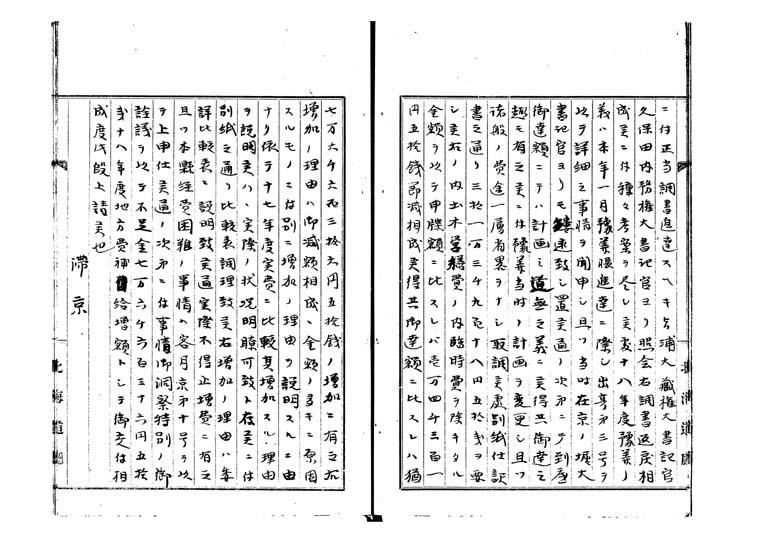 ニ付正当調書進達スヘキ旨浦大蔵権大書記官
久保田内務権大書記官ヨリ照会右調書返戻相
成候ニ付種々考案ヲ尽シ候処十八年度予算ノ
義ハ本年一月予算帳進達ニ際シ出京第三号ヲ
以テ詳細之事情ヲ開申シ且ツ当時在京ノ堀大
書記官ヨリモ 速致シ置候通ノ次第ニテ到底
御達額ニテハ計画之道無之義ニ候得共御達之
趣モ有之候ニ付予算当時ノ計画ヲ変更シ且ツ
諸般ノ費途一層省畧ヲナシ取調候処別紙仕訳
書之通リ三拾一万三千九百十八円五拾弐銭ヲ要
シ候右ノ内土木営繕費ノ内臨時費ヲ除キタル
金額ヲ以テ申牒額ニ比スレバ壱万四千三百一
円五拾銭節減相成候得共御達額ニ比スレハ猶
七万六千六百三拾六円五拾銭ノ増加ニ有之右
増加ノ理由ハ御減額相成ル金額ノ多キニ原因
スルモノニ付別ニ増加ノ理由ヲ説明スルニ由
ナク依テ十七年度実費ニ比較其増加スル理由
ヲ説明スハ実際ノ状況明瞭可致ト存候ニ付
別紙之通リ比較表調理致候右増加ノ理由ハ毎
詳比較表ニ説明致候通実際不得止増費ニ有之
且ツ本県経費困難ノ事情ハ客月京第十号ヲ以
テ上申仕候通ノ次第ニ付事情御洞察特別ノ御
詮議ヲ以テ不足金七万六千六百三十六円五拾
銭十八年度地方費補給増額トシテ御交付相
成度此段上請候也
滞京
北海道廰
北海道廰